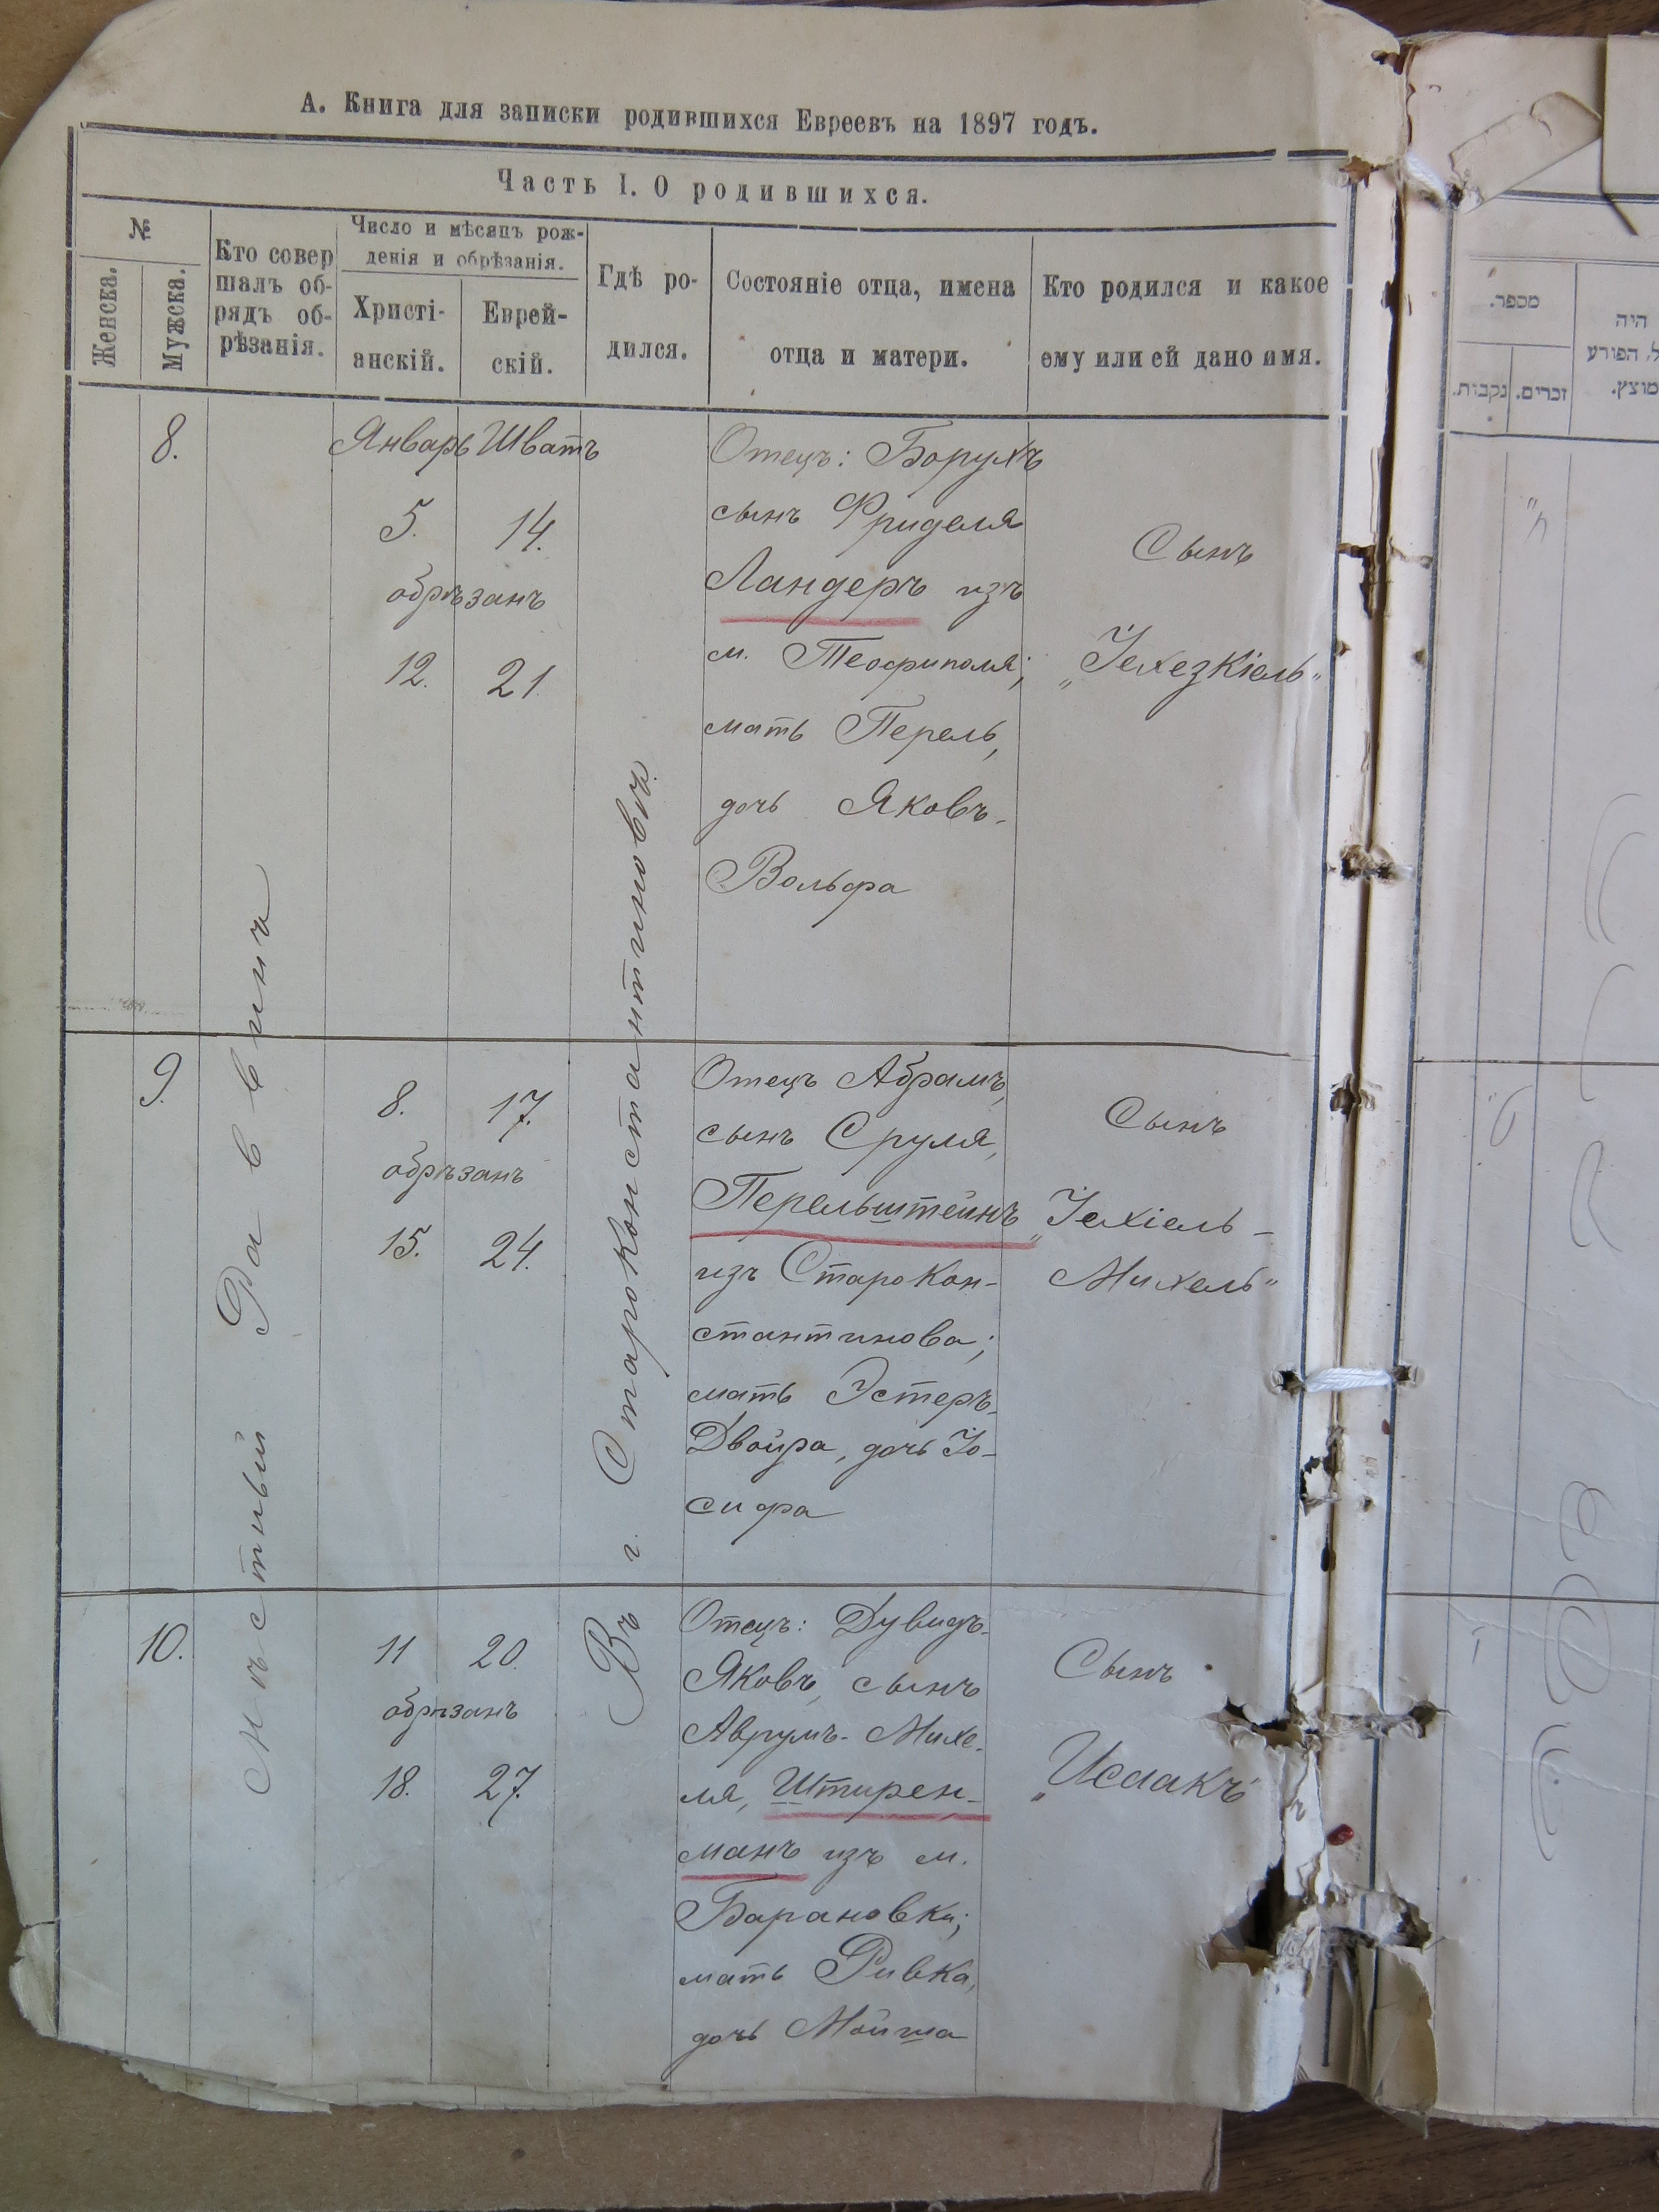 А. Книга для записки родившихся Евреевъ на 1897 годъ.
Часть I. О родившихся.
№
Женска.
Мужска.
Кто совер
шалъ об-
рядъ об-
рѣзанія.
Число и мѣсяцъ рож-
денія и обрѣзанія.
Христі-
анскій.
Еврей-
скій.
Гдѣ ро-
дился.
Состояніе отца, имена
отца и матери.
Кто родился и какое
ему или ей дано имя.
Мѣстный Раввинъ
Въ г. Староконстантиновѣ
8.
Январь Шватъ
5. 14.
обрѣзанъ
12. 21
Отецъ: Борухъ
сынъ Фриделя
Ландеръ изъ
м. Теофиполя;
мать Перель,
дочь Яковъ-
Вольфа
Сынъ
„Іехезкіель"
9.
8. 17.
обрѣзанъ
15. 24.
Отецъ Абрамъ,
сынъ Сруля,
Перельштейнъ
изъ Старокон-
стантинова;
мать Эстеръ-
Двойра, дочь Іо-
сифа
Сынъ
„Іехіель-
Михель"
10.
11 20.
обрѣзанъ
18. 27.
Отецъ: Дувидъ-
Яковъ, сынъ
Аврумъ-Михе-
ля, Штирен-
манъ изъ м.
Барановки;
мать Ривка,
дочь Мойша
Сынъ
„Исаакъ"
מספר.
נקבות.
זכרים.
היה
ל, הפורע
מוצץ.